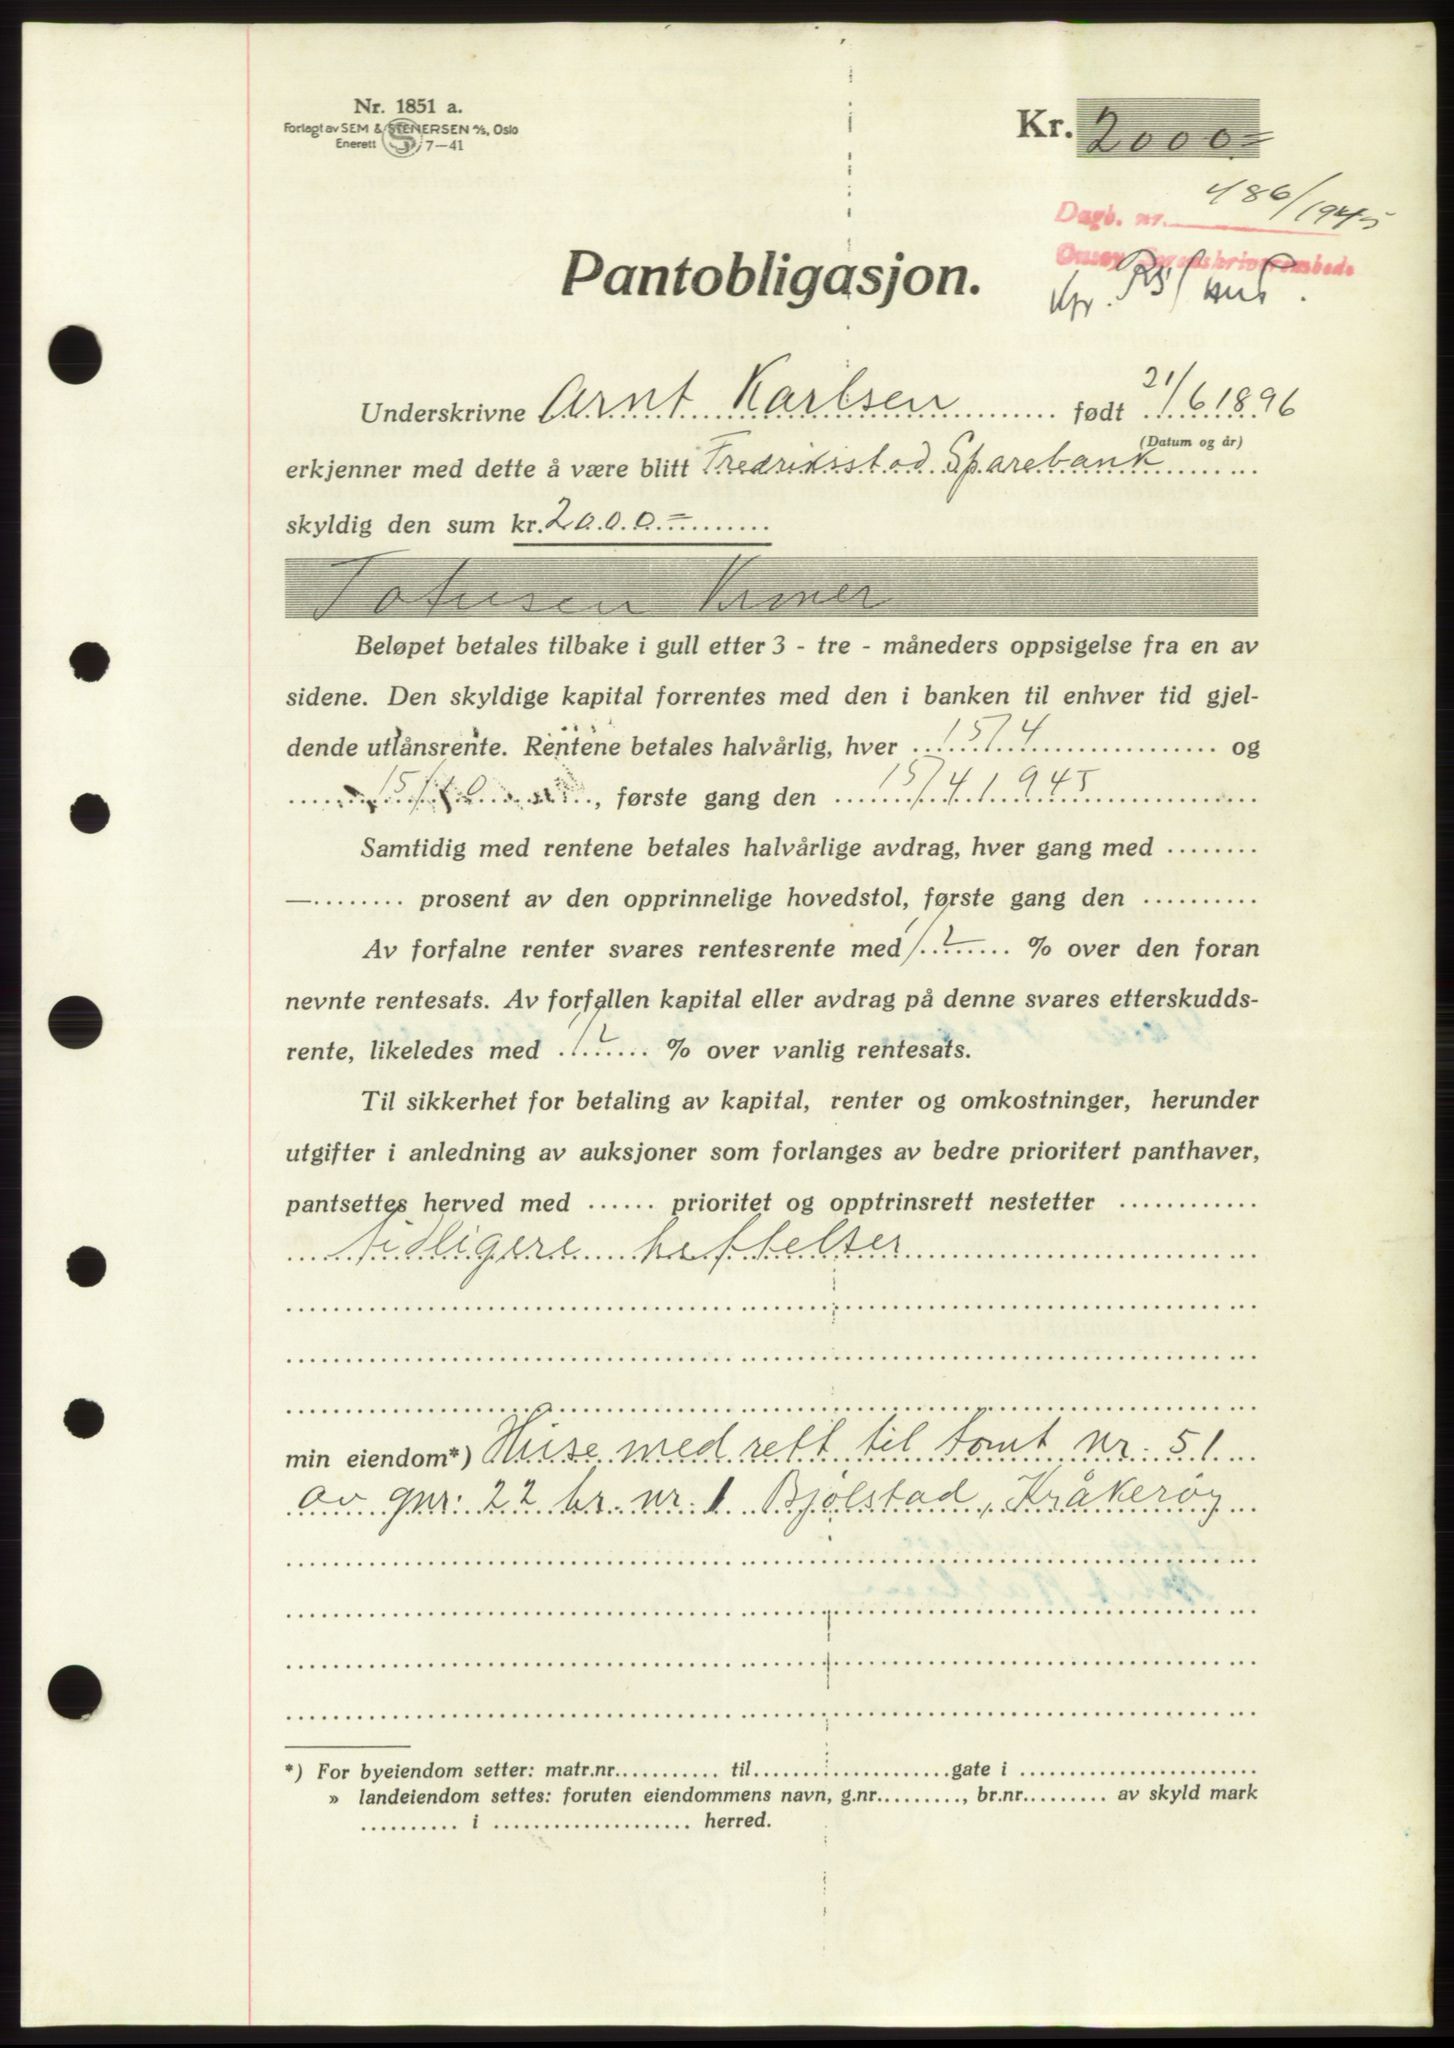 Nr. 1851 a.
Forlagt av SEM & STENERSEN A/S, Oslo
Enerett S 7—41
Kr. 2000=
Dagb. nr. 486/1945
Onsøy Sorenskriverembede
Pantobligasjon.
Underskrivne Arnt Karlsen født 21/6 1896
(Datum og år)
erkjenner med dette å være blitt Fredriksstad Sparebank
skyldig den sum kr. 2000=
Totusen Kroner
Beløpet betales tilbake i gull etter 3 - tre - måneders oppsigelse fra en av
sidene. Den skyldige kapital forrentes med den i banken til enhver tid gjel-
dende utlånsrente. Rentene betales halvårlig, hver 15/4 og
15/10, første gang den 15/4 1945
Samtidig med rentene betales halvårlige avdrag, hver gang med
— prosent av den opprinnelige hovedstol, første gang den
Av forfalne renter svares rentesrente med 1/2 % over den foran
nevnte rentesats. Av forfallen kapital eller avdrag på denne svares etterskudds-
rente, likeledes med 1/2 % over vanlig rentesats.
Til sikkerhet for betaling av kapital, renter og omkostninger, herunder
utgifter i anledning av auksjoner som forlanges av bedre prioritert panthaver,
pantsettes herved med ...... prioritet og opptrinsrett nestetter
tidligere heftelser
min eiendom*) Huse med rett til tomt nr. 51
av gnr. 22 br. nr. 1 Bjølstad, Kråkerøy
*) For byeiendom setter: matr.nr........... til.....................gate i
» landeiendom settes: foruten eiendommens navn, g.nr........., br.nr......... av skyld mark
.......... i .................... herred.